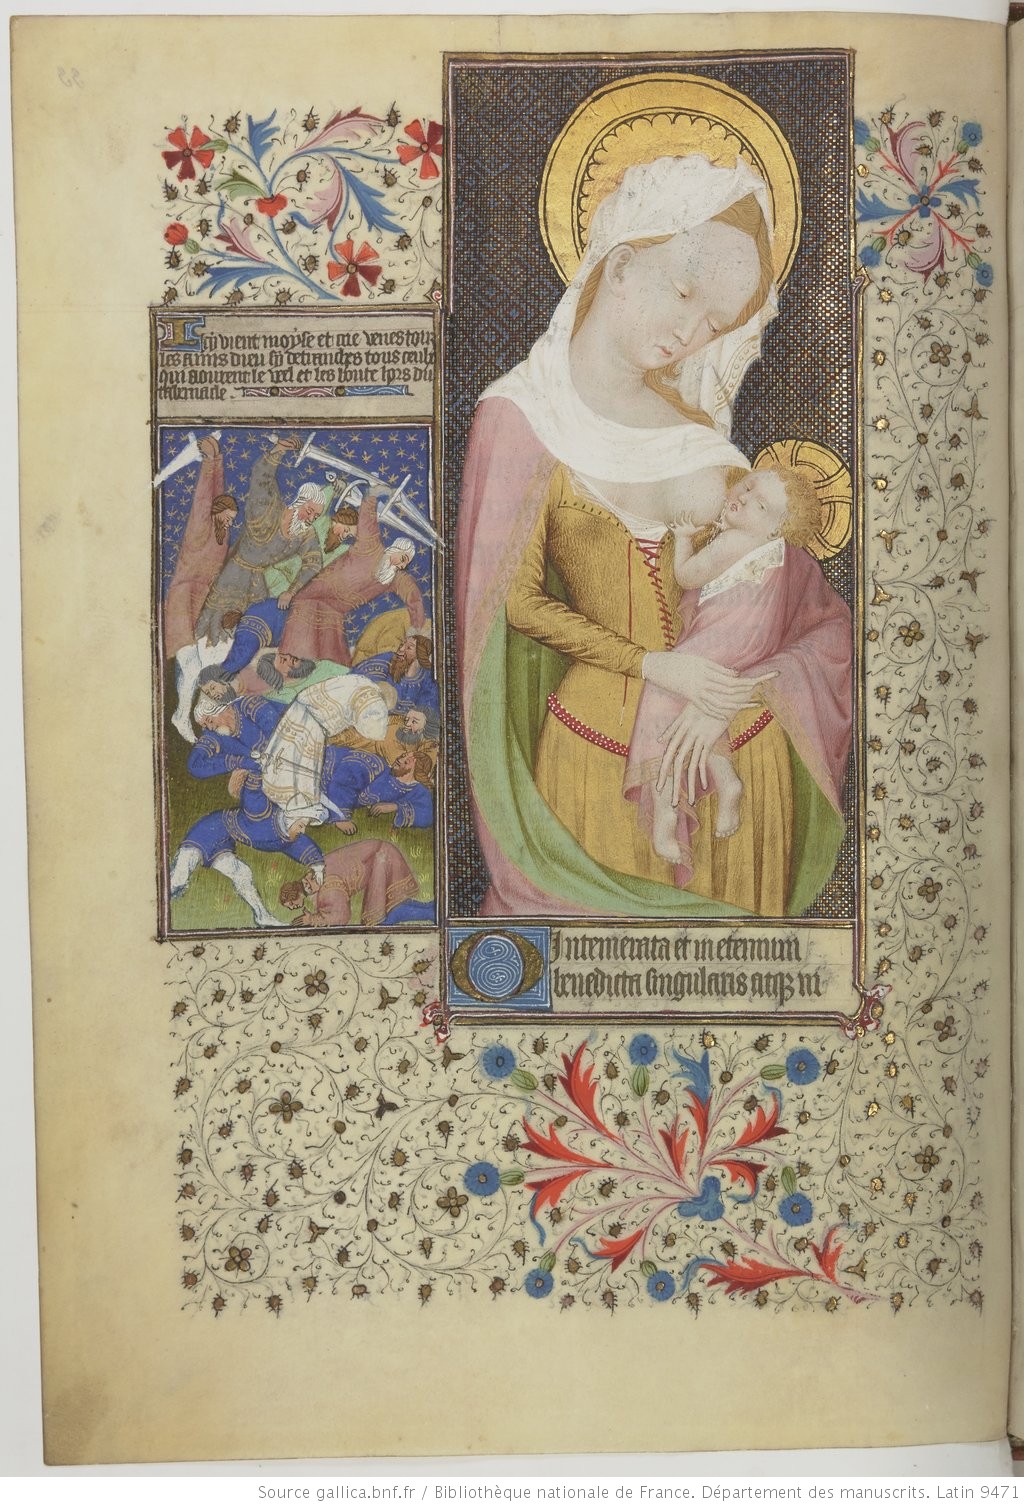 Icy vient moyse et me venes touz
les amis dieu sy detrandres tous ceulz
qui aourent le veel et les boute hors du
tabernacle
O Intemerata et in eternum
benedicta singularis atqȝ in
Source gallica.bnf.fr / Bibliothèque nationale de France. Département des manuscrits. Latin 9471